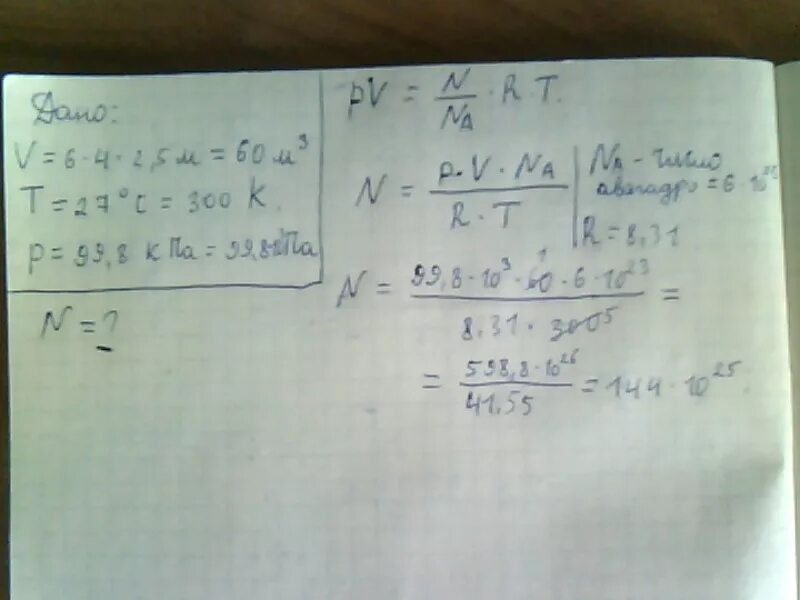 Дано:
V = 6·4·2,5 м = 60 м³
T = 27°C = 300 K.
p = 99,8 кПа = 99,8 Па
N = ?
pV = N/N_A · R · T.
N = p·V·N_A / R·T
N_A - число
авагадро = 6·10
R = 8,31
N = 99,8·10³·60·6·10²³ / 8,31·300 5 =
= 598,8·10²⁶ / 41,55 = 144·10²⁵.